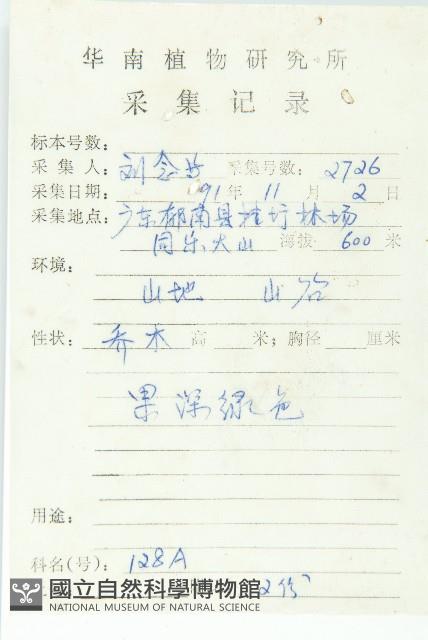 华南植物研究所
采集记录
标本号数:
采集人: 刘念 采集号数: 2726
采集日期: 91年 11月 2日
采集地点: 广东郁南县桂圩林场
同乐大山 海拔 600 米
环境:
山地 山谷
性状: 乔木 高 米; 胸径 厘米
果深绿色
用途:
科名(号): 128A
2份
國立自然科學博物館
NATIONAL MUSEUM OF NATURAL SCIENCE